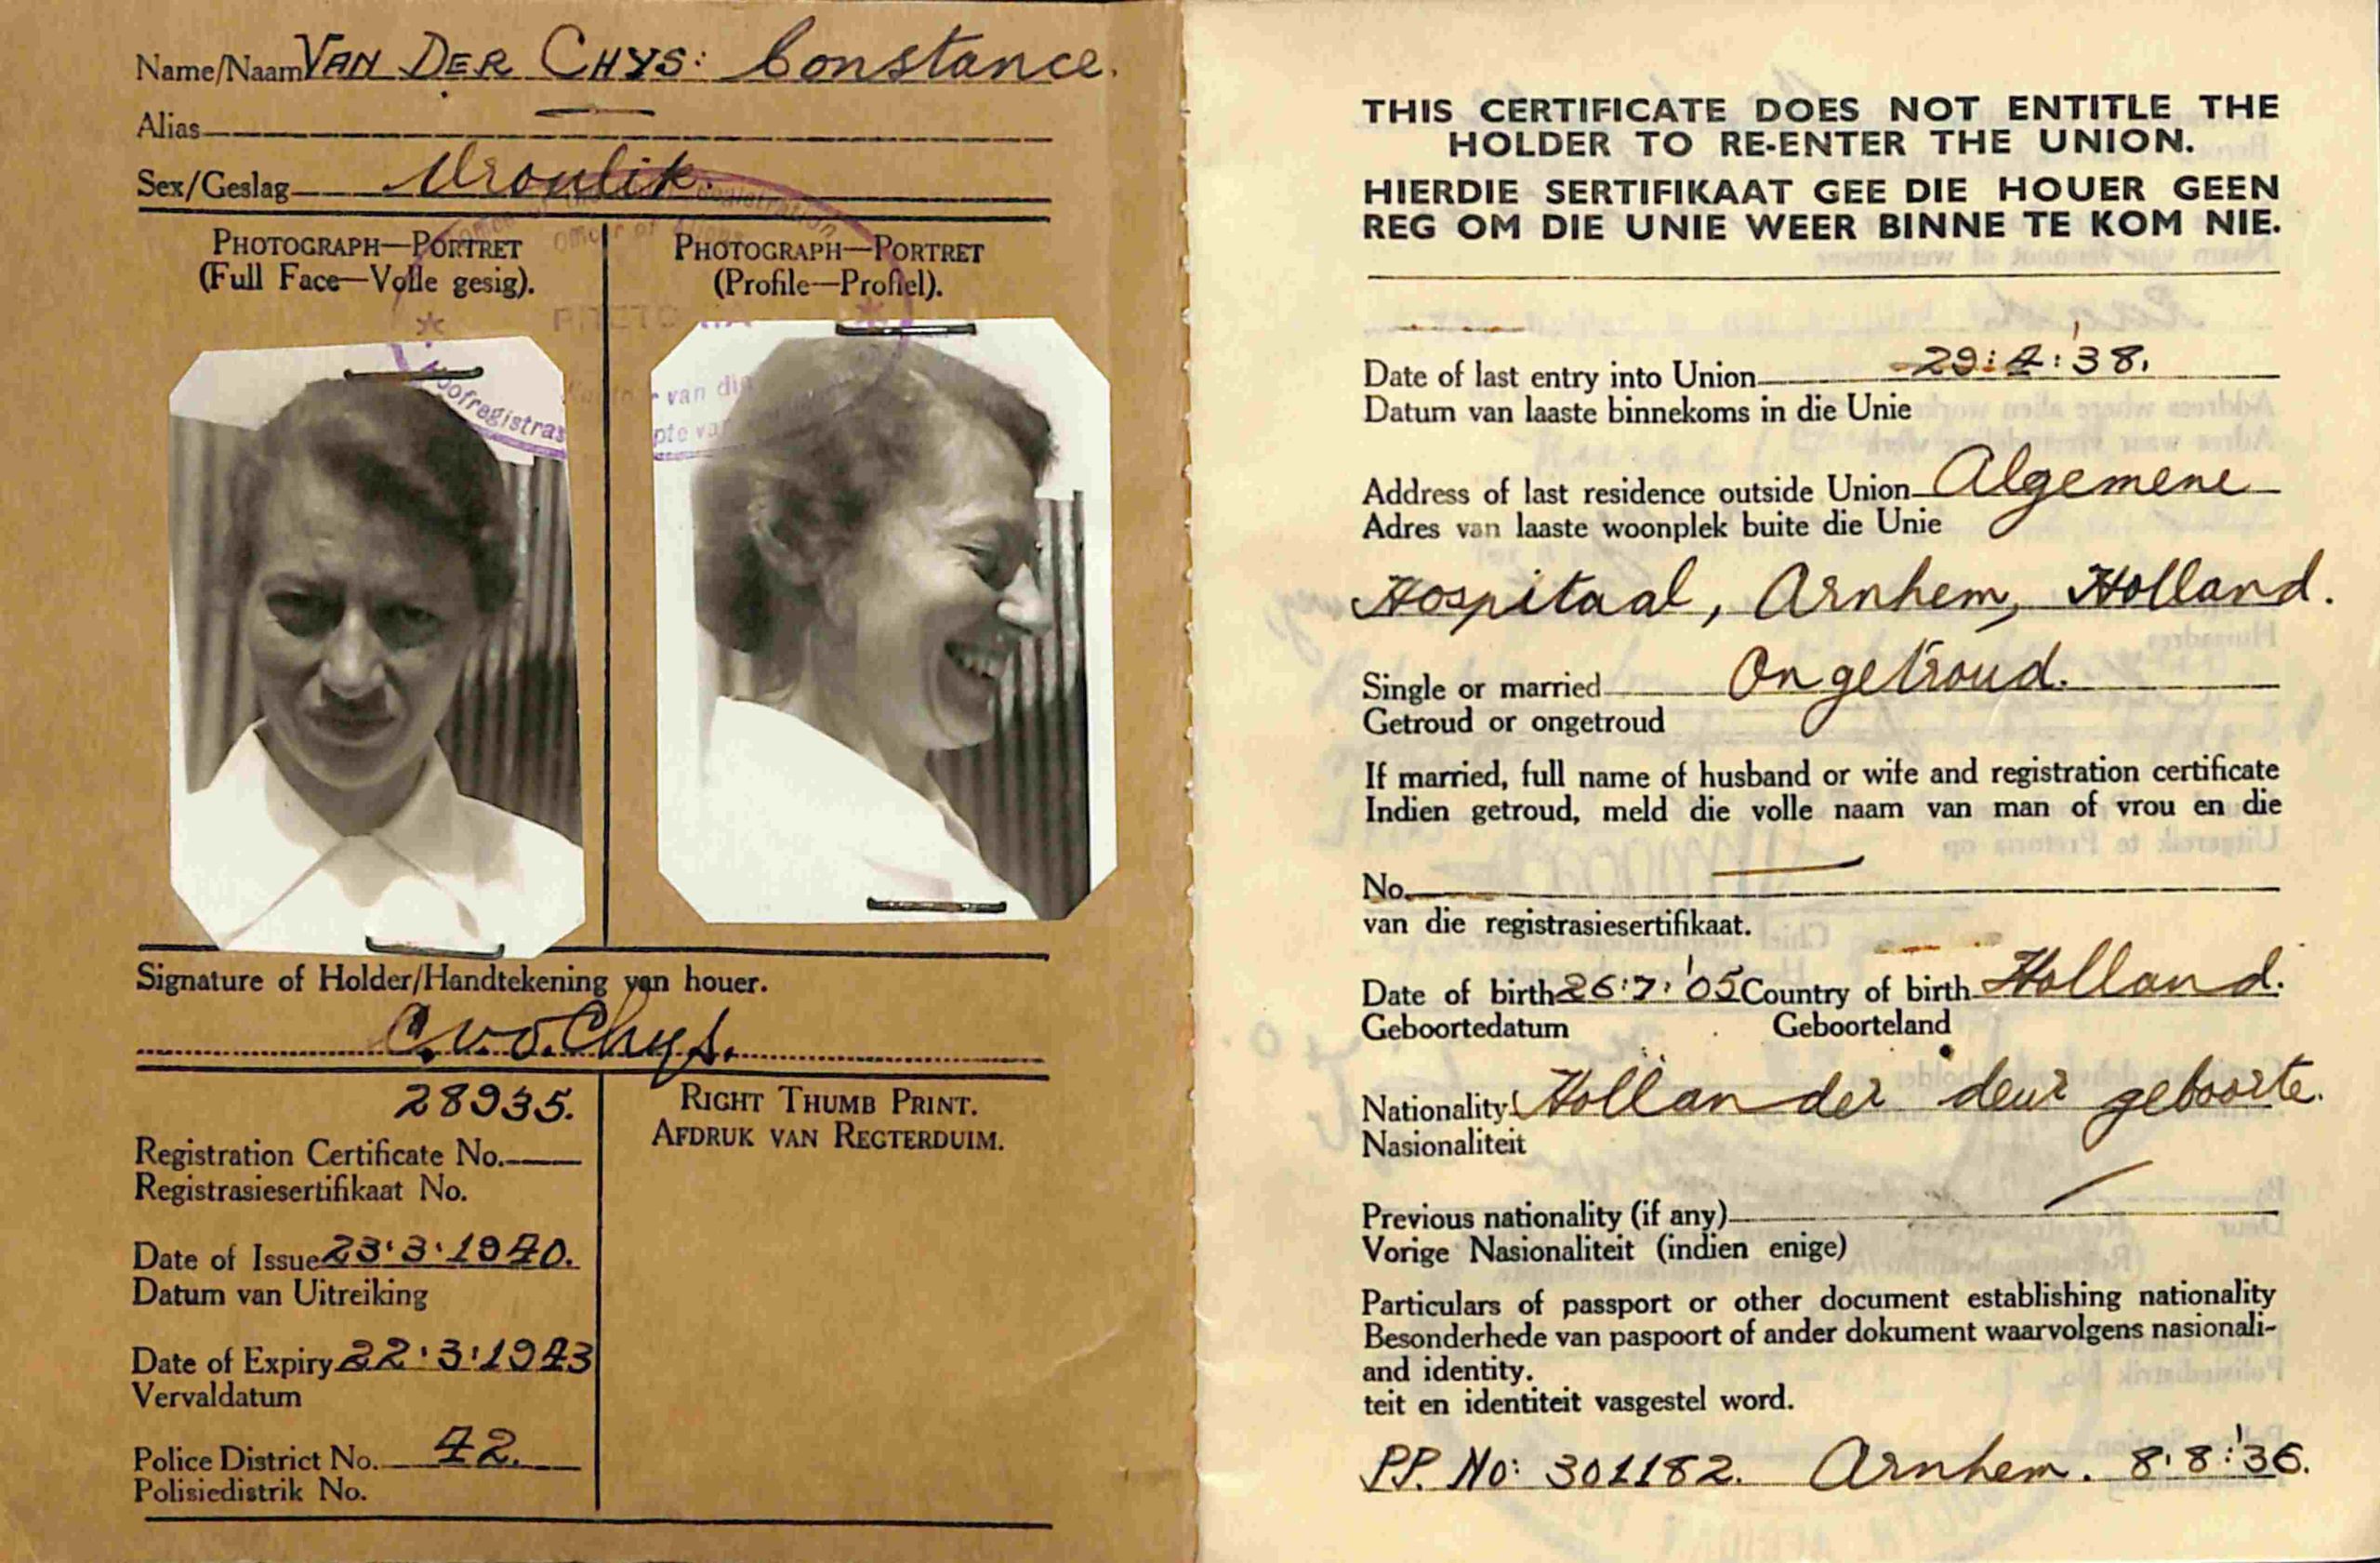 Name/Naam VAN DER CHYS: Constance.
Alias —
Sex/Geslag Vroulik.
PHOTOGRAPH—PORTRET
(Full Face—Volle gesig).
PHOTOGRAPH—PORTRET
(Profile—Profiel).
Hoofregistras
r van die
pte va
Signature of Holder/Handtekening van houer.
C.v.d.Chys.
28935.
Registration Certificate No.
Registrasiesertifikaat No.
Date of Issue 23.3.1940.
Datum van Uitreiking
Date of Expiry 22.3.1943
Vervaldatum
Police District No. 42.
Polisiedistrik No.
RIGHT THUMB PRINT.
AFDRUK VAN REGTERDUIM.
THIS CERTIFICATE DOES NOT ENTITLE THE
HOLDER TO RE-ENTER THE UNION.
HIERDIE SERTIFIKAAT GEE DIE HOUER GEEN
REG OM DIE UNIE WEER BINNE TE KOM NIE.
Date of last entry into Union 29:4:'38.
Datum van laaste binnekoms in die Unie
Address of last residence outside Union Algemene
Adres van laaste woonplek buite die Unie
Hospitaal, Arnhem, Holland.
Single or married Ongetroud.
Getroud or ongetroud
If married, full name of husband or wife and registration certificate
Indien getroud, meld die volle naam van man of vrou en die
No. —
van die registrasiesertifikaat.
Date of birth 26:7:'05 Country of birth Holland.
Geboortedatum Geboorteland
Nationality Hollander deur geboorte.
Nasionaliteit
Previous nationality (if any)
Vorige Nasionaliteit (indien enige)
Particulars of passport or other document establishing nationality
Besonderhede van paspoort of ander dokument waarvolgens nasionali-
and identity.
teit en identiteit vasgestel word.
P.P. No: 301182. Arnhem. 8.8:'36.